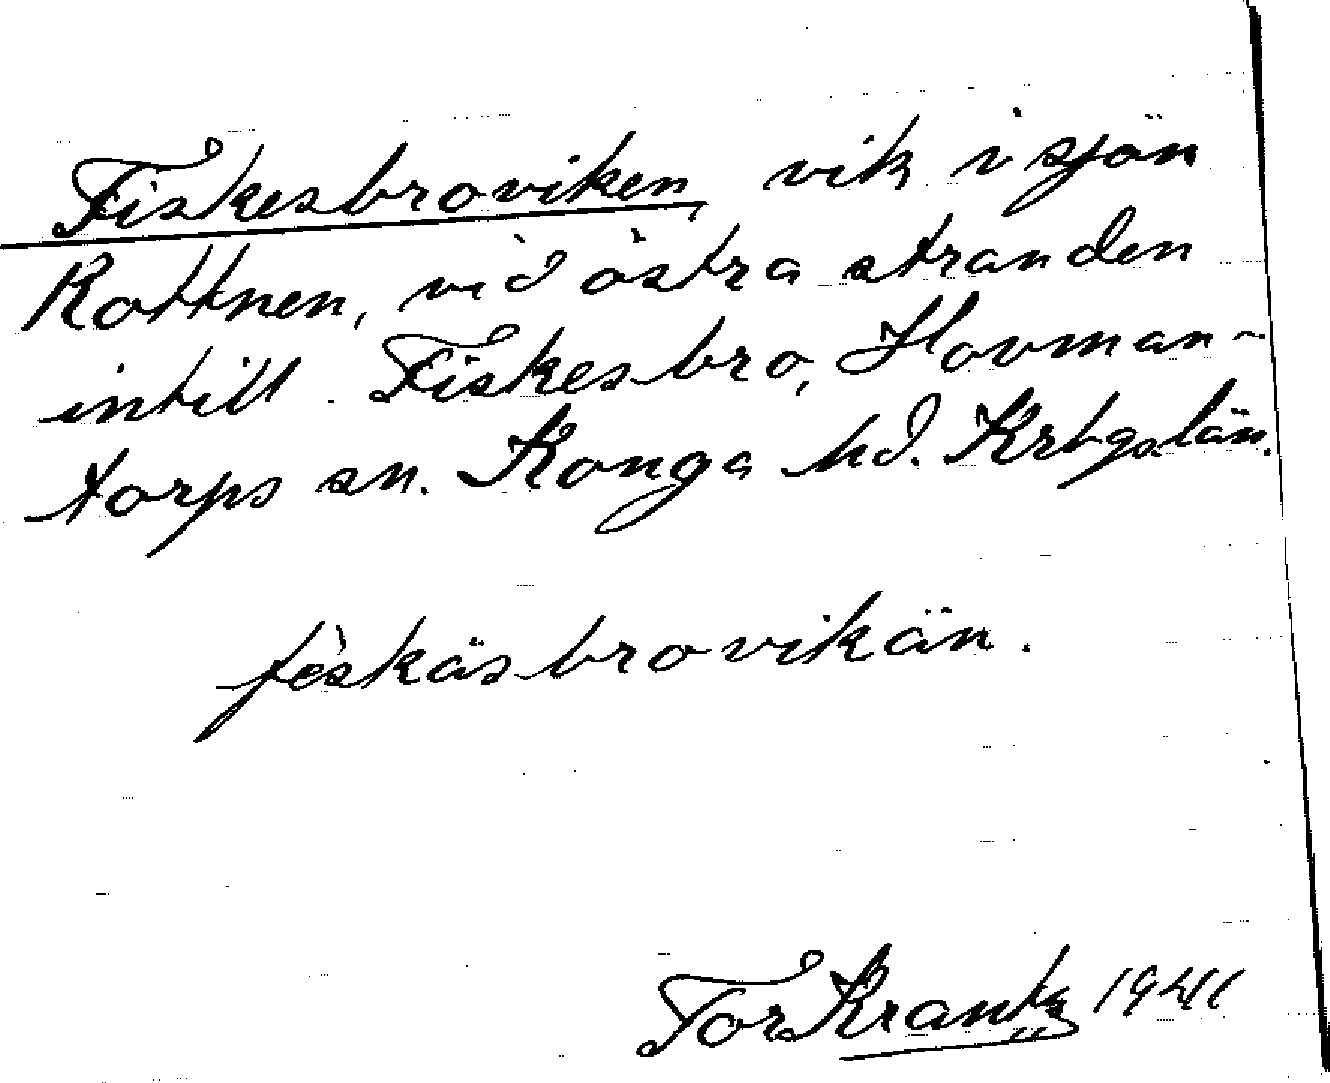 Fiskesbroviken, vik i sjön
Rottnen, vid östra stranden
intill Fiskesbro, Hovman-
torps sn. Konga hd. Krbgs län.
fèskäsbrovikän.
Tor Krantz 1941